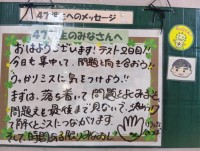 47期生へのメッセージ
47期生のみなさんへ
おはようございます!テスト2日目!!
今日も集中して、問題と向き合おう!!
うっかりミスに気をつけよう!!
まずは、落ち着いて問題をよみましょう
問題文も最後まで見ないで、決めつ
けて解くとミスにつながります。
そして、時間ある限り見なおし